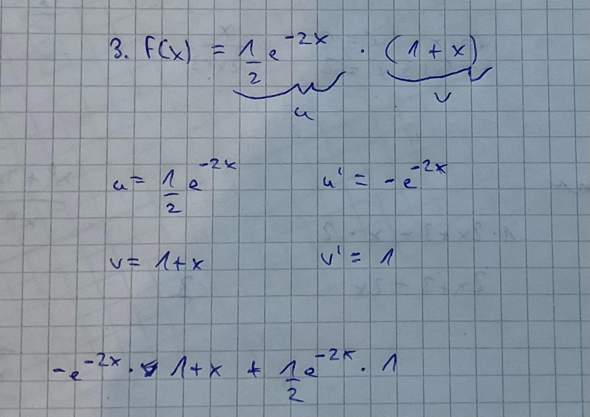 3. f(x) = 1/2 e^-2x · (1 + x)
u v
u = 1/2 e^-2x u' = -e^-2x
v = 1+x v' = 1
-e^-2x · 1+x + 1/2 e^-2x · 1